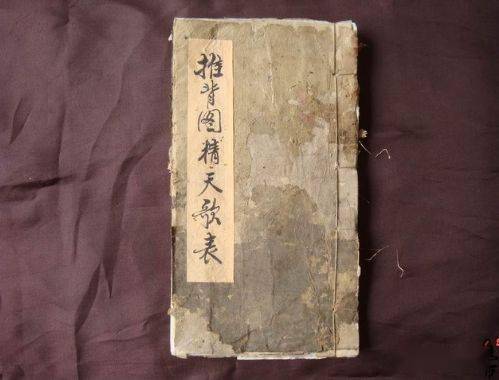 推背图精天歌表